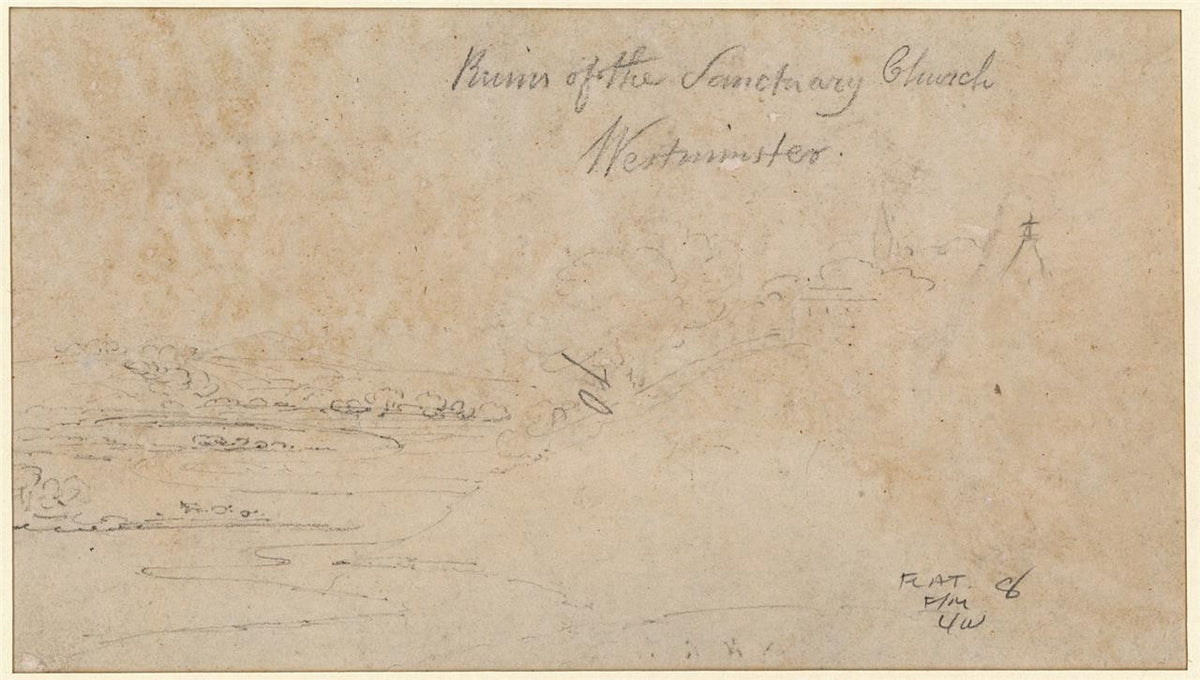 Ruins of the Sanctuary Church
Westminster.
FLAT. 8
F/M
4W